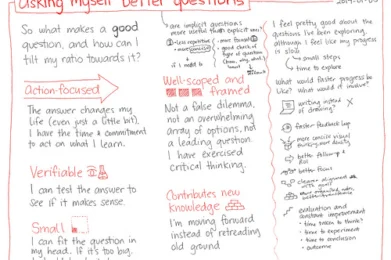 Asking myself better questions
So what makes a good
question, and how can I
tilt my ratio towards it?
Action-focused
The answer changes my
life (even just a little bit).
I have the time & commitment
to act on what I learn.
Verifiable
I can test the answer to
see if it makes sense.
Small
I can fit the question in
my head. If it's too big,
are implicit questions
more useful than explicit ones?
Well-scoped and
framed
Not a false dilemma,
not an overwhelming
array of options, not
a leading question.
I have exercised
critical thinking.
Contributes new
knowledge
I'm moving forward
instead of retreading
old ground
I feel pretty good about the
questions I've been exploring,
although I feel like my progress
is slow.
small steps
time to explore
What would faster progress be
like? What would it involve?
writing instead
of drawing?
faster feedback loop
more concise visual
better focus
evaluation and
constant improvement
time taken to think?
time to experiment
time to conclusion
outcome